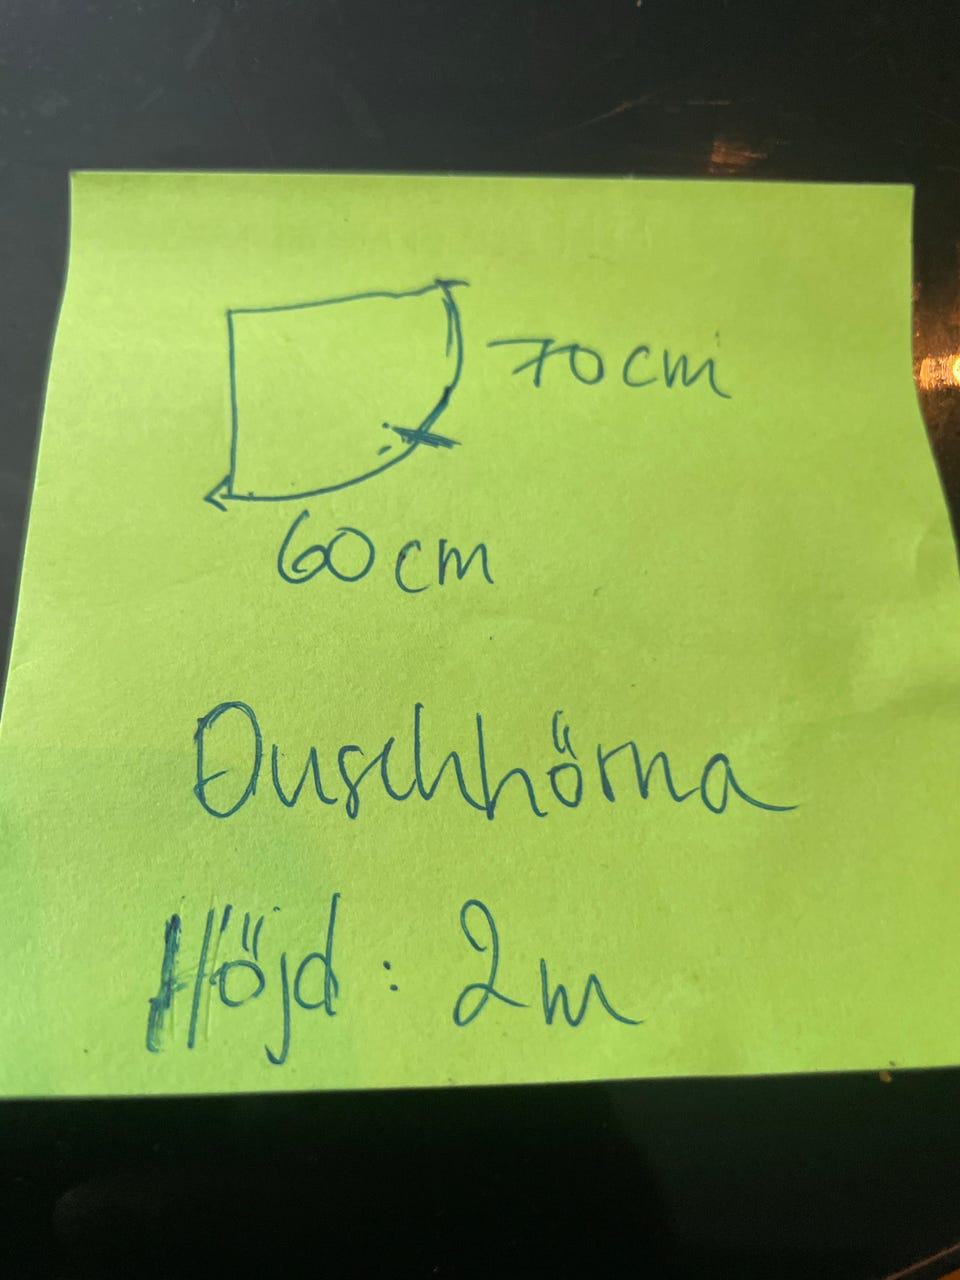 70 cm
60 cm
Duschhörna
Höjd : 2 m